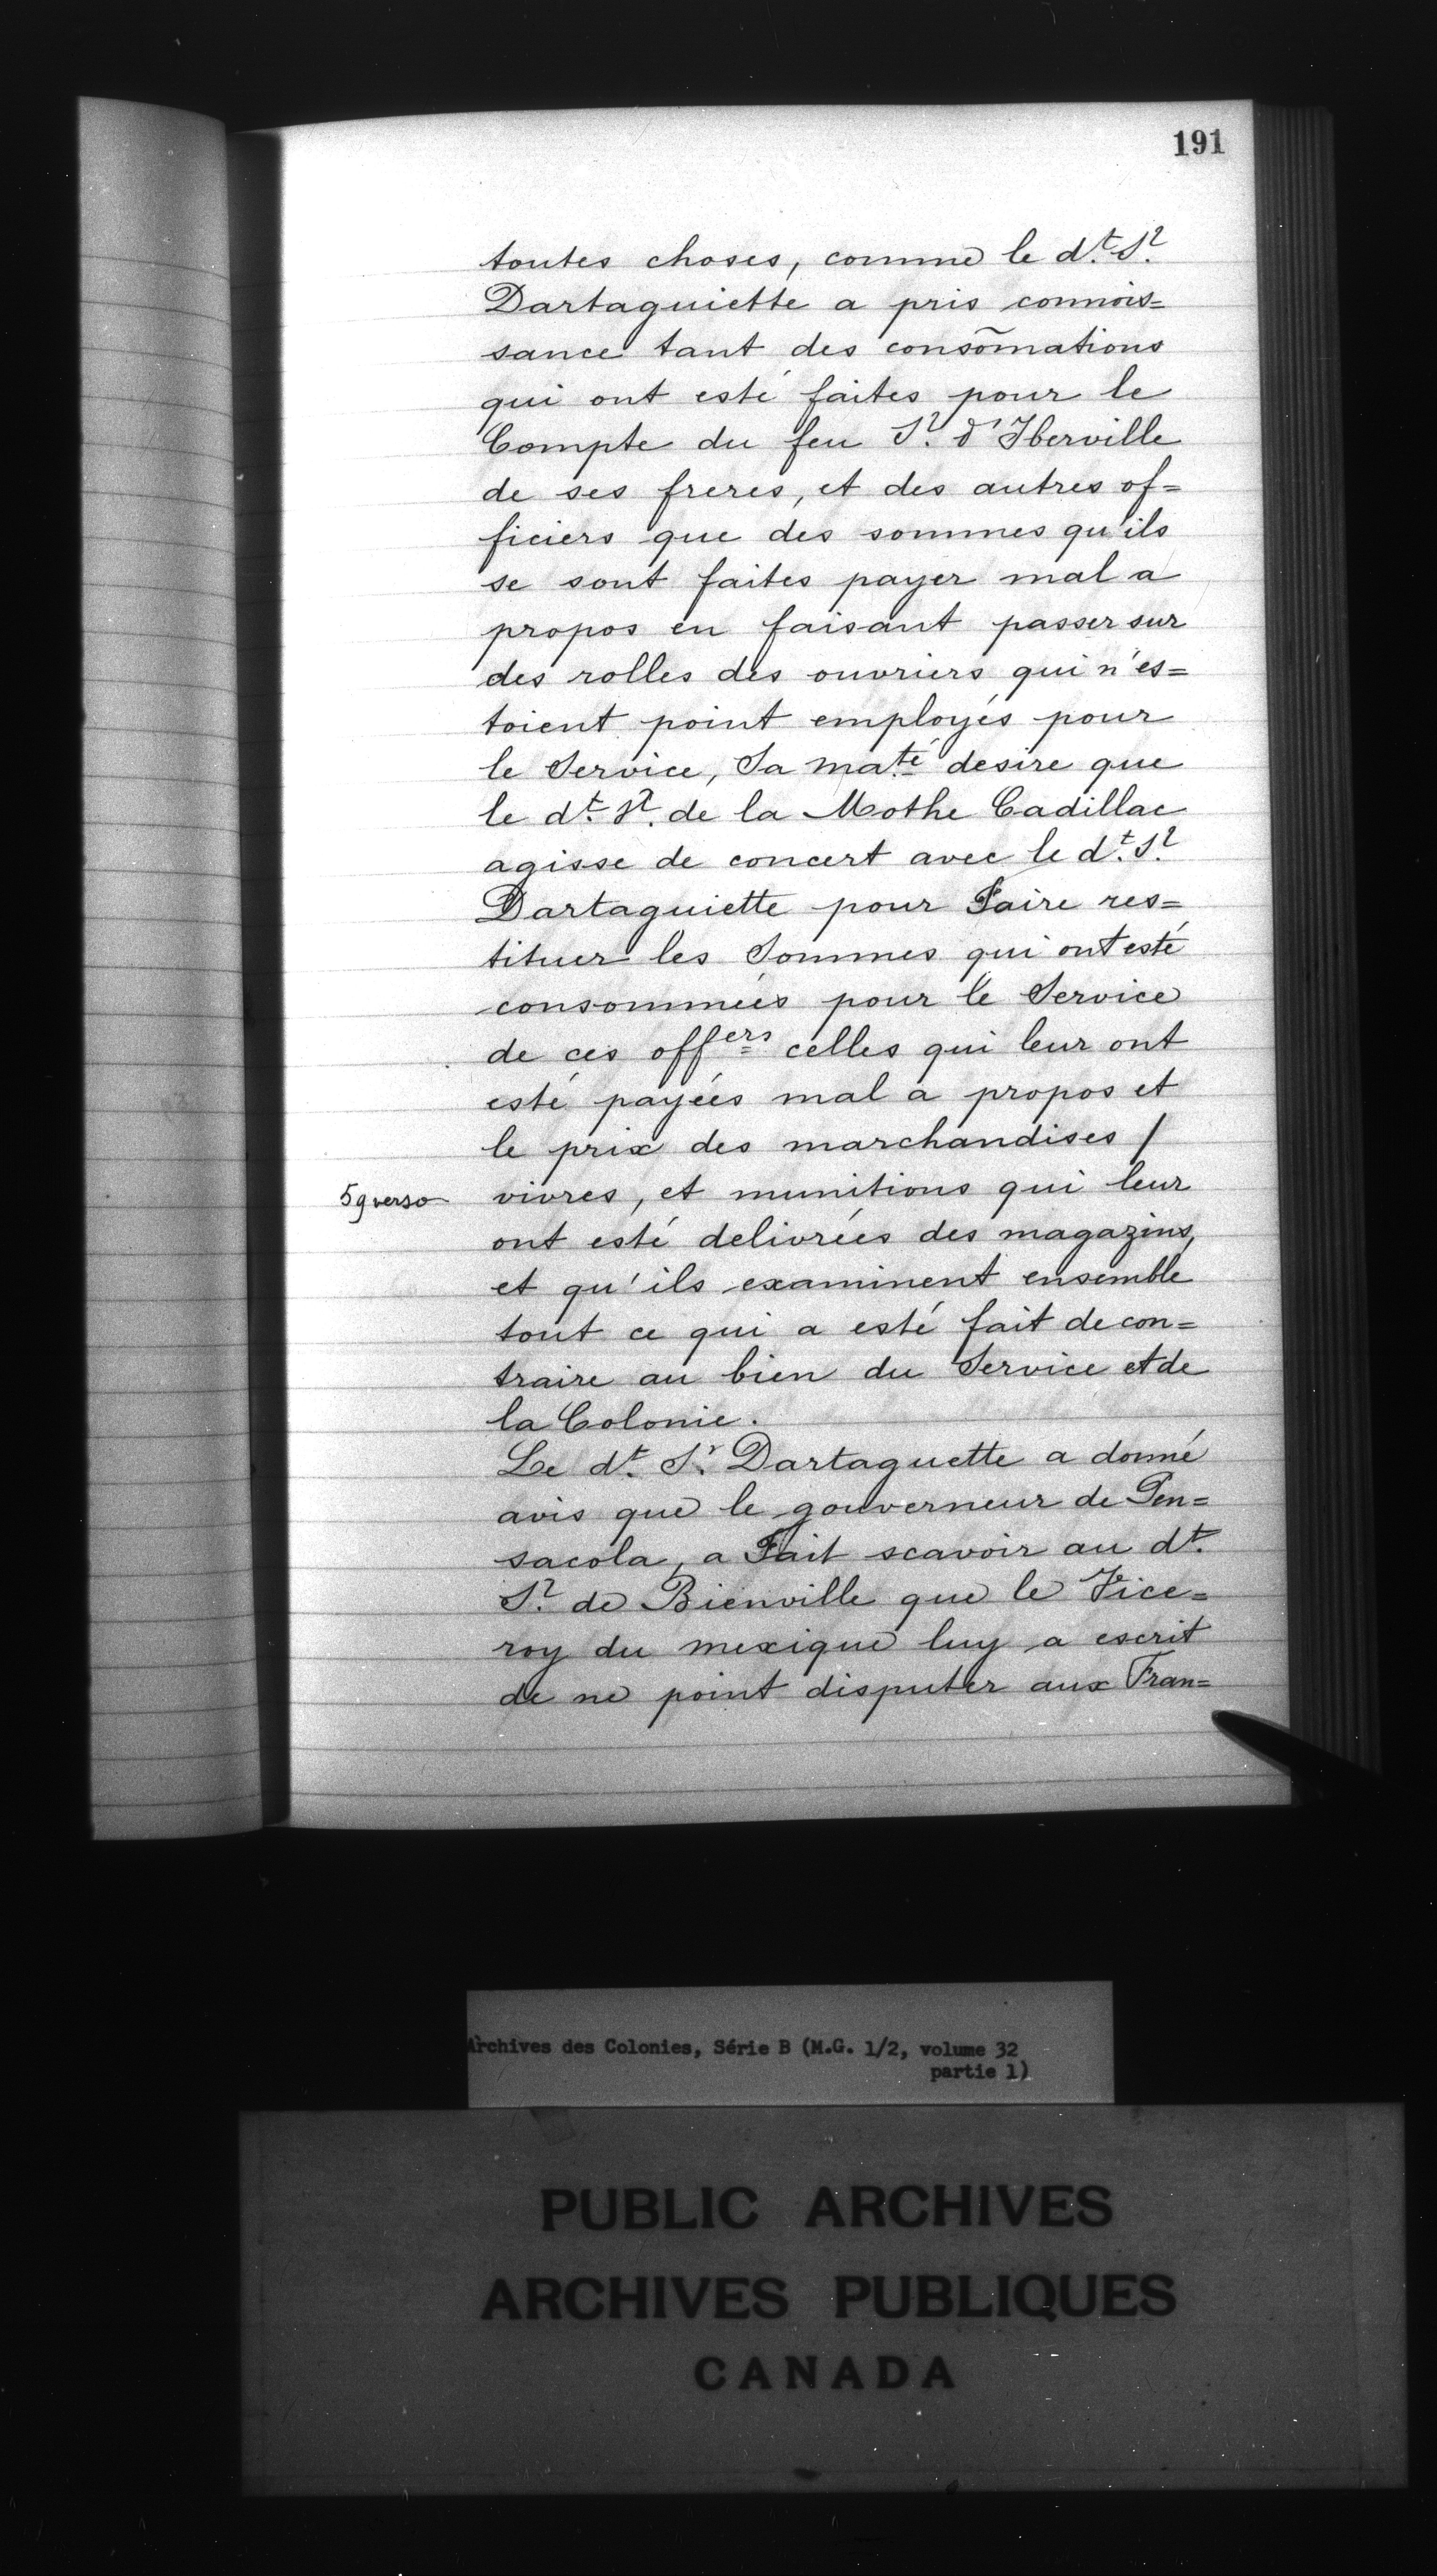 191
toutes choses, comme le d.t S.r
Dartaguiette a pris connois=
sance tant des consom̃ations
qui ont esté faites pour le
Compte du feu S.r d'Iberville
de ses freres, et des autres of=
ficiers que des sommes qu'ils
se sont faites payer mal a
propos en faisant passer sur
des rolles des ouvriers qui n'es=
toient point employés pour
le Service, Sa ma.té desire que
le d.t S.r de la Mothe Cadillac
agisse de concert avec le d.t S.r
Dartaguiette pour Faire res=
tituer les Sommes qui ont esté
consommées pour le Service
de ces off.ers celles qui leur ont
esté payées mal a propos et
le prix des marchandises /
59 verso vivres, et munitions qui leur
ont esté delivrées des magazins,
et qu'ils examinent ensemble
tout ce qui a esté fait de con=
traire au bien du Service et de
la Colonie.
Le d.t S.r Dartaguette a donné
avis que le gouverneur de Pen=
sacola, a Fait scavoir au d.t
S.r de Bienville que le Vice=
roy du mexique luy a escrit
de ne point disputer aux Fran=
Archives des Colonies, Série B (M.G. 1/2, volume 32
partie 1)
PUBLIC ARCHIVES
ARCHIVES PUBLIQUES
CANADA